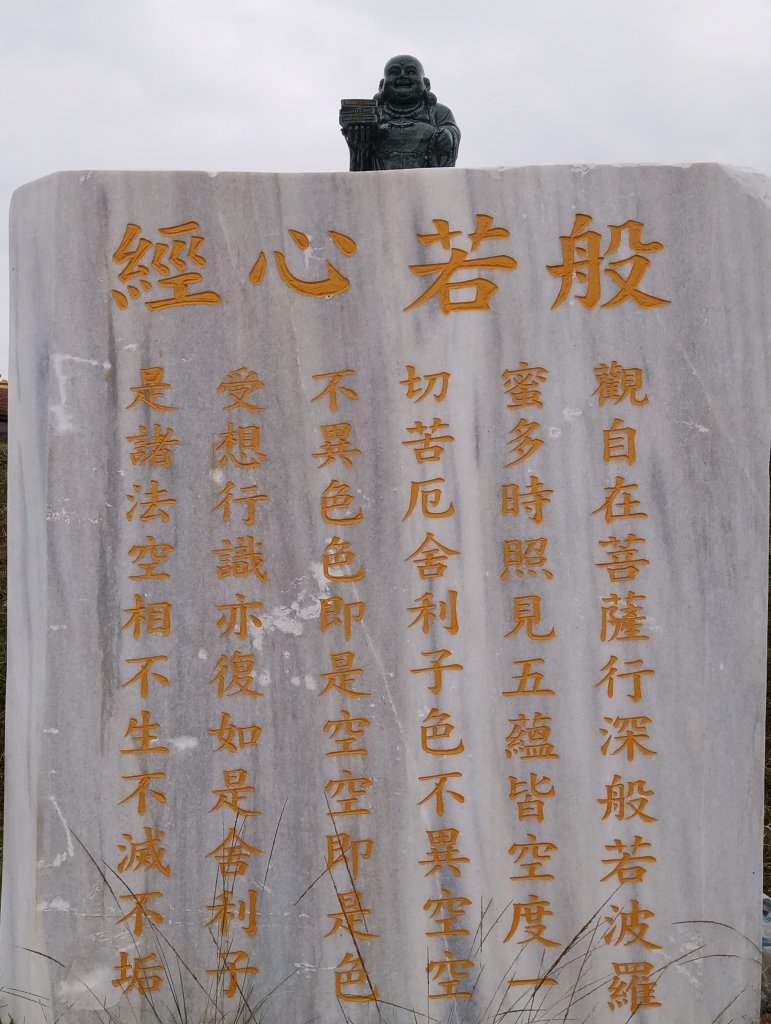 般若心經
觀自在菩薩行深般若波羅
蜜多時照見五蘊皆空度一
切苦厄舍利子色不異空空
不異色色即是空空即是色
受想行識亦復如是舍利子
是諸法空相不生不滅不垢